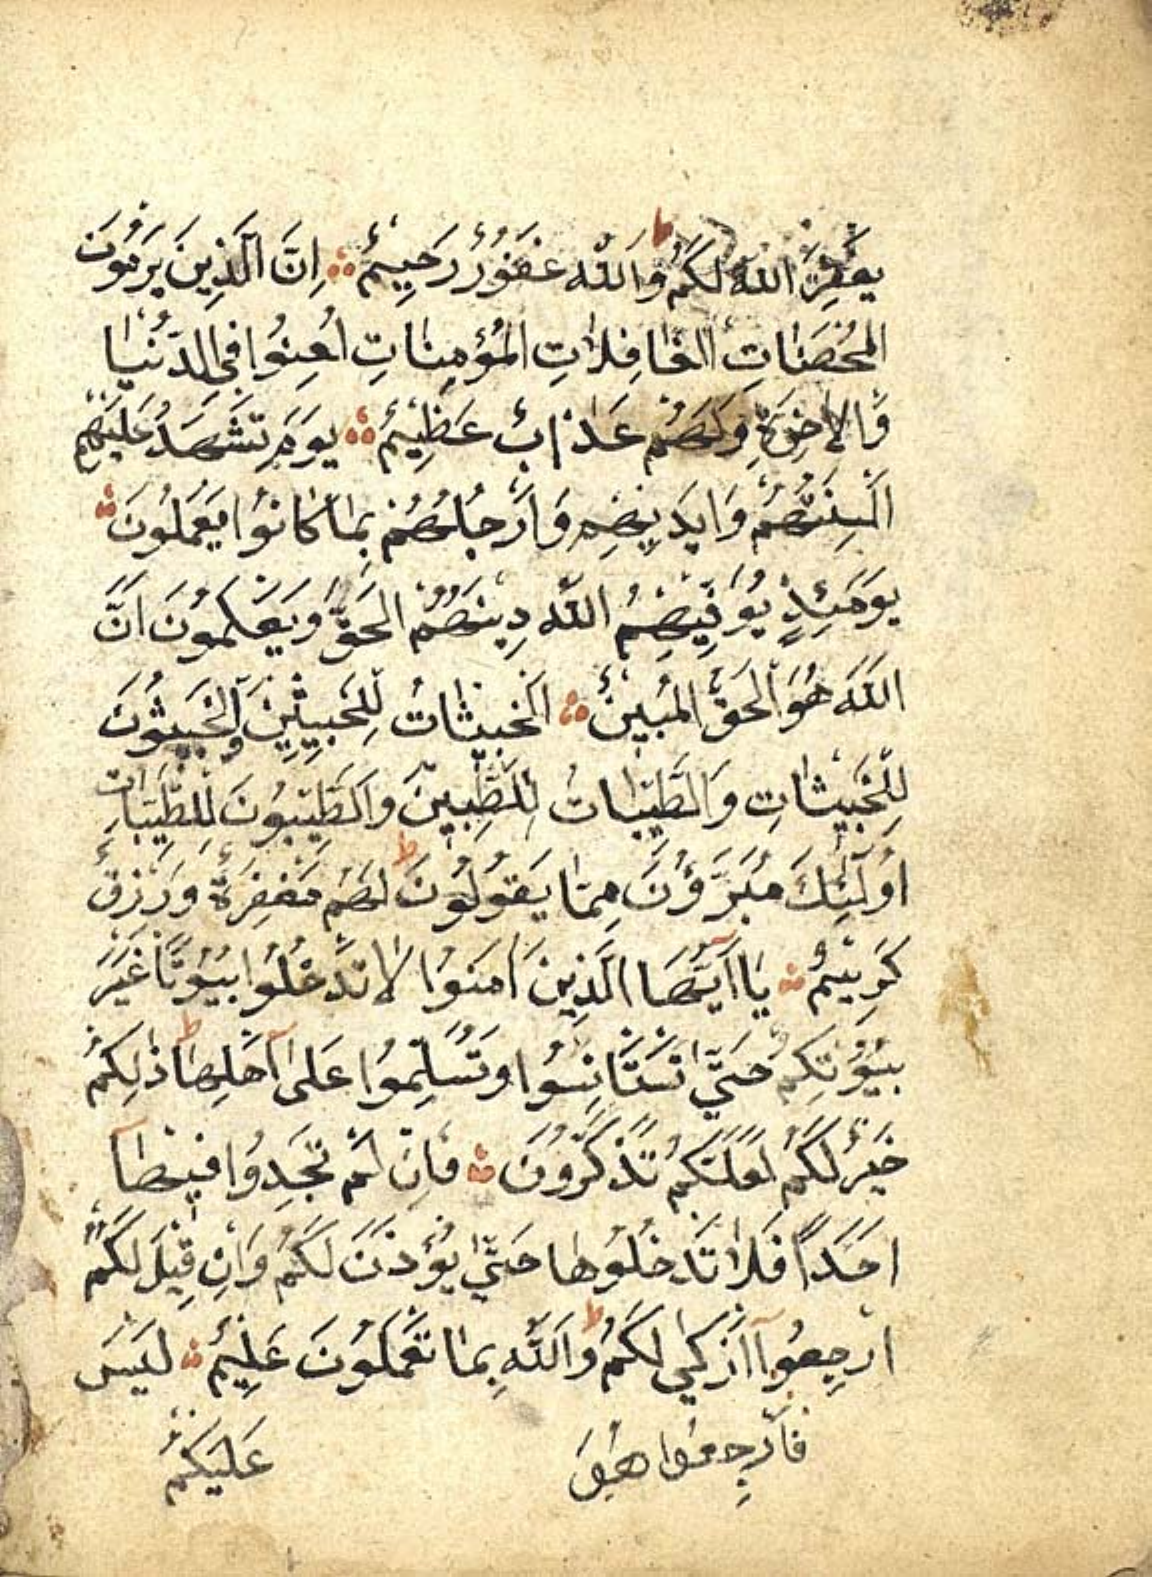 يَغْفِرَ اللّٰهُ لَكُمْ وَاللّٰه غَفُورٌ رَحِيمٌ اِنَّ الَّذِينَ يَرْمُونَ
المُحْصَنَاتِ الغَافِلَاتِ المُؤْمِنَاتِ لُعِنُوا فِي الدُّنْيَا
وَالاخِرَةِ وَلَهُمْ عَذَابٌ عَظِيمٌ يَوْمَ تَشْهَدُ عَلَيْهِمْ
اَلْسِنَتُهُمْ وَاَيْدِيهِمْ وَاَرْجُلُهُمْ بِمَا كَانُوا يَعْمَلُونَ
يَوْمَئِذٍ يُوَفِّيهِمُ اللّٰه دِينَهُمُ الحَقَّ وَيَعْلَمُونَ اَنَّ
اللّٰهَ هُوَ الحَقُّ المُبِينُ اَلْخَبِيثَاتُ لِلْخَبِيثِينَ وَالْخَبِيثُونَ
لِلْخَبِيثَاتِ وَالطَّيِّبَاتُ لِلطَّيِّبِينَ وَالطَّيِّبُونَ لِلطَّيِّبَاتِ
اُولٰئِكَ مُبَرَّؤُنَ مِمَّا يَقُولُونَ لَهُمْ مَغْفِرَةٌ وَرِزْقٌ
كَرِيمٌ يَا اَيُّهَا الَّذِينَ اٰمَنُوا لَا تَدْخُلُوا بُيُوتًا غَيْرَ
بُيُوتِكُمْ حَتَّى تَسْتَانِسُوا وَتُسَلِّمُوا عَلَى اَهْلِهَا ذٰلِكُمْ
خَيْرٌ لَكُمْ لَعَلَّكُمْ تَذَكَّرُونَ فَاِنْ لَمْ تَجِدُوا فِيهَا
اَحَدًا فَلَا تَدْخُلُوهَا حَتَّى يُؤْذَنَ لَكُمْ وَاِنْ قِيلَ لَكُمُ
ارْجِعُوا اَزْكَى لَكُمْ وَاللّٰهُ بِمَا تَعْمَلُونَ عَلِيمٌ لَيْسَ
فَارْجِعُوا هُوَ عَلَيْكُمْ